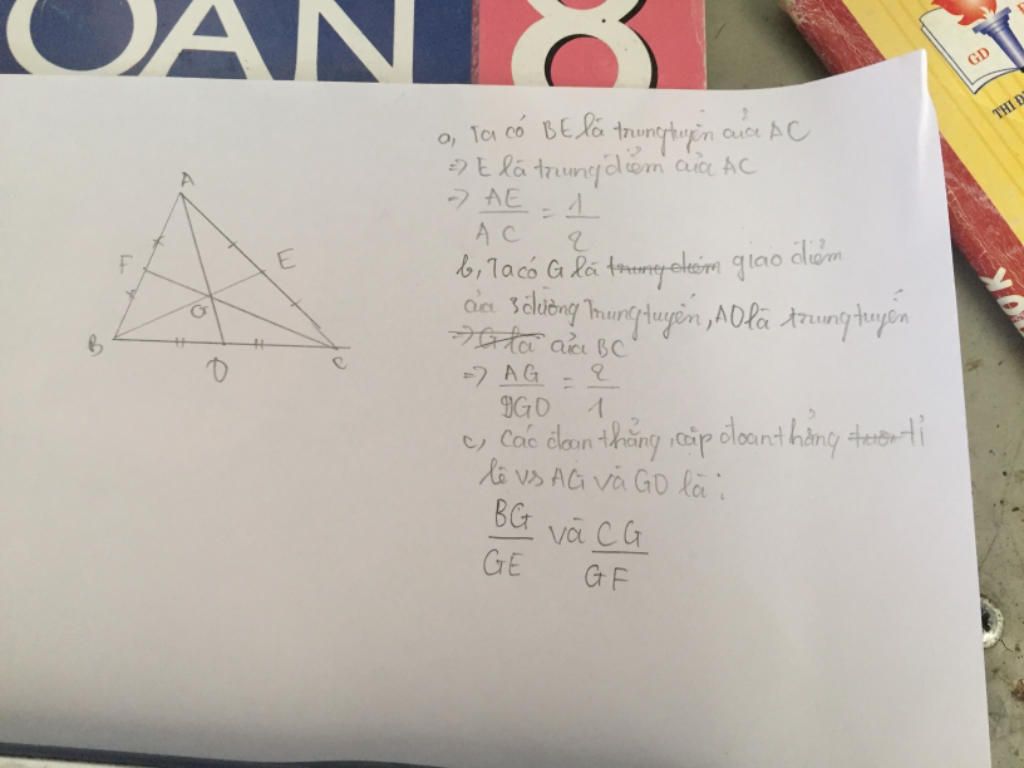 OAN 8
GD
THI Đ
A
F
E
G
B
D
C
a, Ta có BE là trung tuyến của AC
=> E là trung điểm của AC
=> AE/AC = 1/2
b, Ta có G là trung điểm giao điểm
của 3 đường trung tuyến, AD là trung tuyến
=> G là của BC
=> AG/GD = 2/1
c, Các đoạn thẳng, cặp đoạn thẳng tỉ
lệ vs AG và GD là:
BG/GE và CG/GF